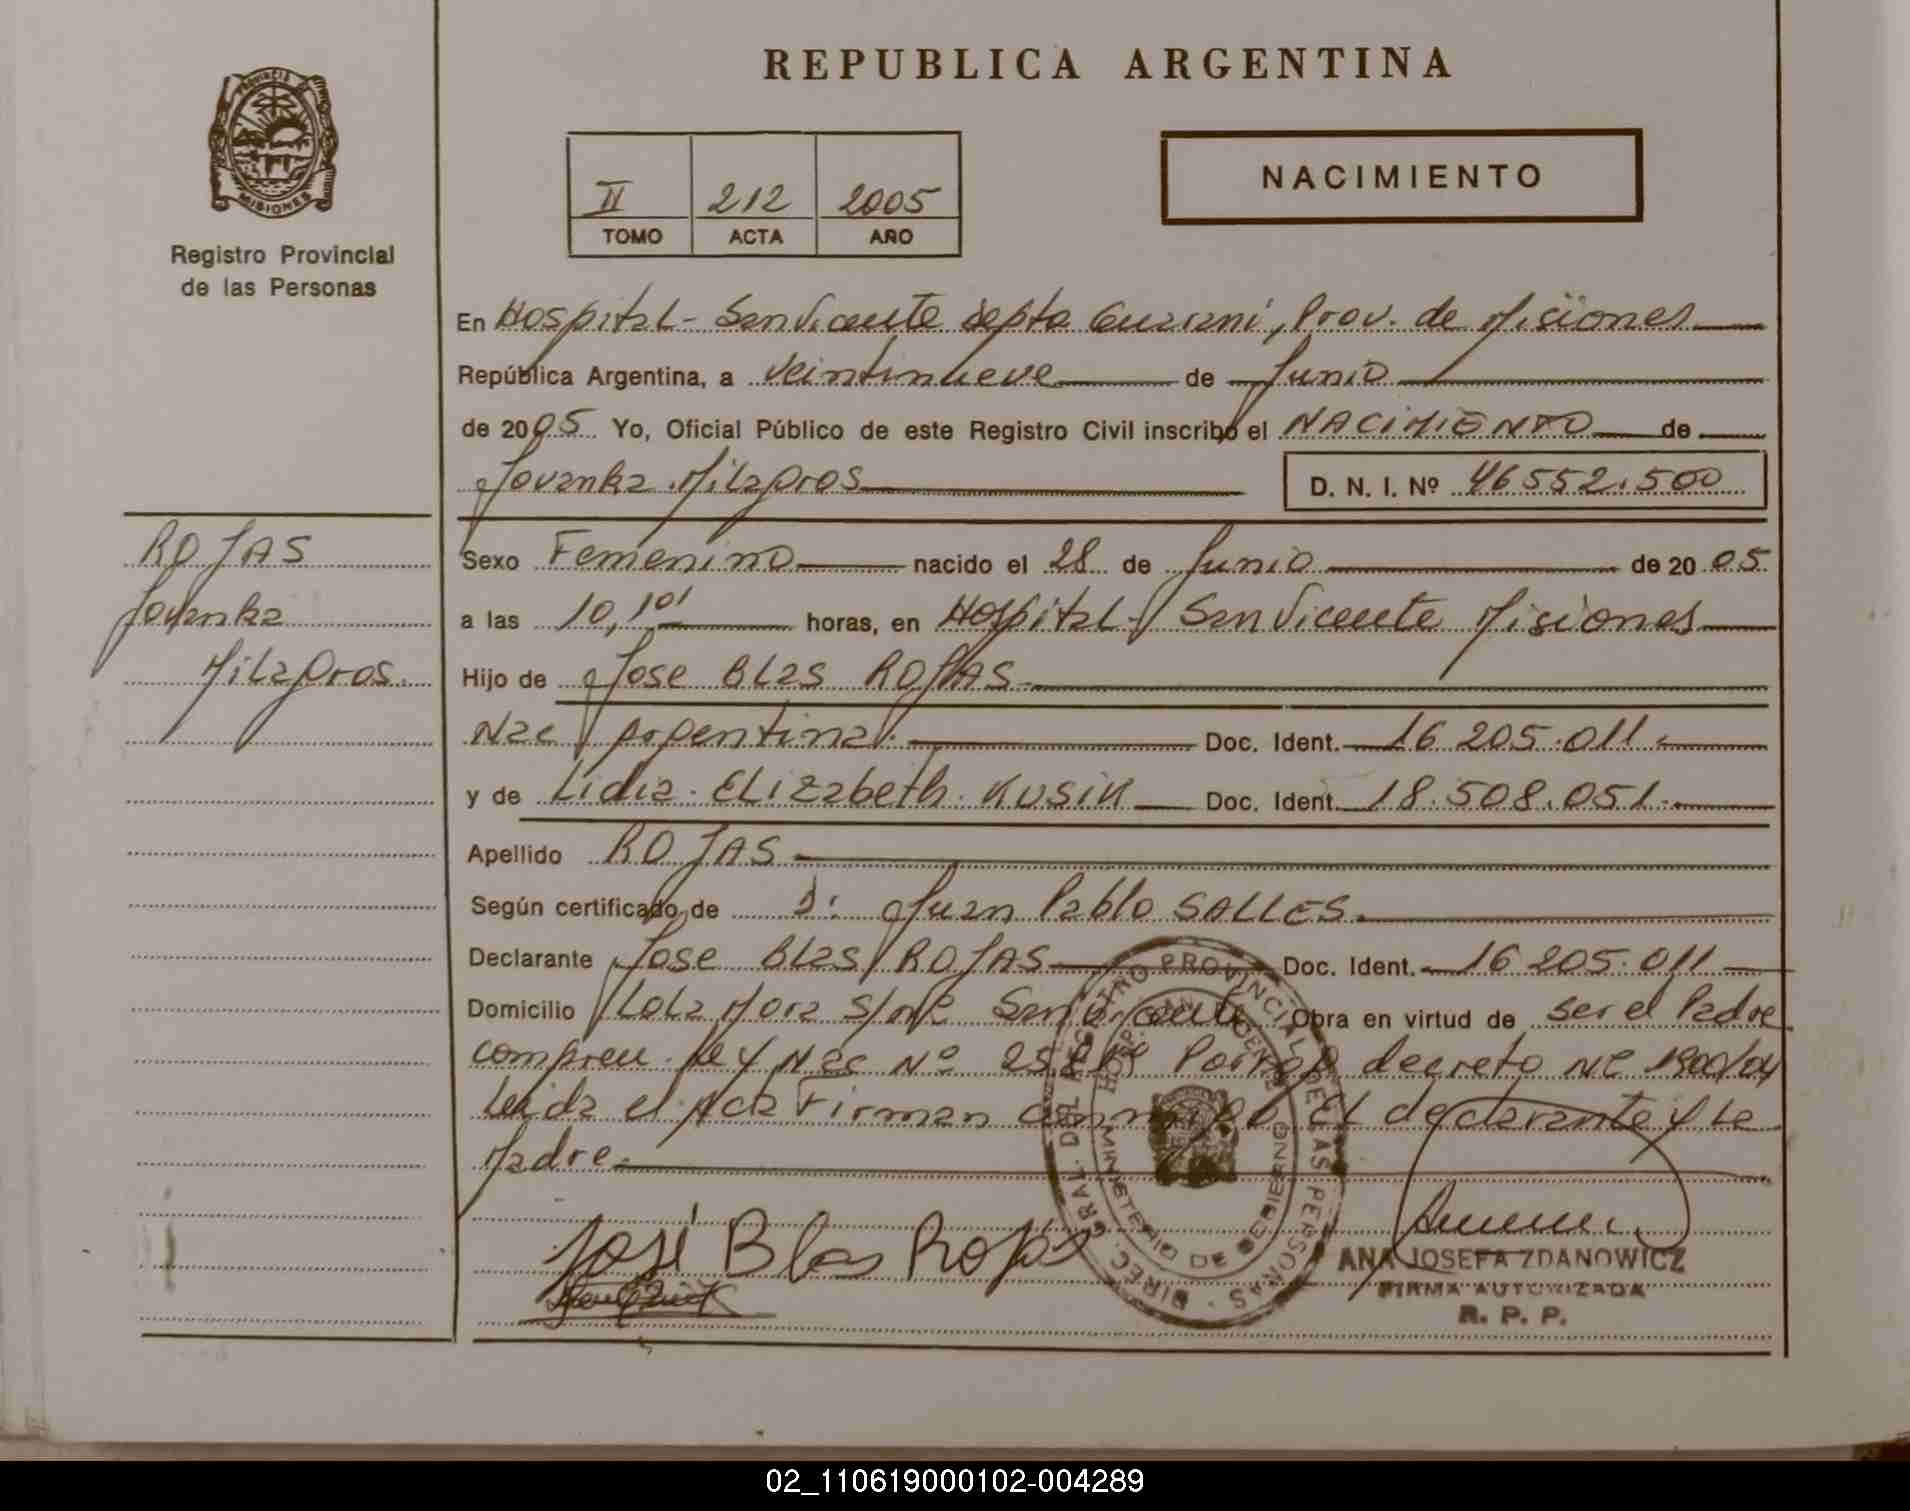 REPUBLICA ARGENTINA
PROVINCIA
MISIONES
Registro Provincial
de las Personas
II 212 2005
TOMO ACTA AÑO
NACIMIENTO
En Hospital - San Vicente Depto Guarani, Prov. de Misiones
República Argentina, a veintinueve de Junio
de 2005 Yo, Oficial Público de este Registro Civil inscribo el NACIMIENTO de
Jovanka Milagros D. N. I. Nº 46552.500
ROJAS
Jovanka
Milagros.
Sexo Femenino nacido el 28 de Junio de 2005
a las 10,10' horas, en Hospital - San Vicente Misiones
Hijo de Jose Blas ROJAS
Nac Argentina. Doc. Ident. 16 205.011.
y de Lidia Elizabeth KUSIK Doc. Ident. 18.508.051.
Apellido ROJAS
Según certificado de Dr Juan Pablo SALLES.
Declarante Jose Blas ROJAS Doc. Ident. 16 205.011
Domicilio Lola Mora S/Nº San Vicente Obra en virtud de ser el Padre
Ley Nac Nº decreto Nº 1900/04
Leida el Acta Firman conmigo El declarante y la
Madre.
José Blas Rojas
DIREC. GRAL. DEL REGISTRO PROVINCIAL DE LAS PERSONAS
HOSP. SAN VICENTE
MINISTERIO DE GOBIERNO
ANA JOSEFA ZDANOWICZ
FIRMA AUTORIZADA
R. P. P.
02_110619000102-004289